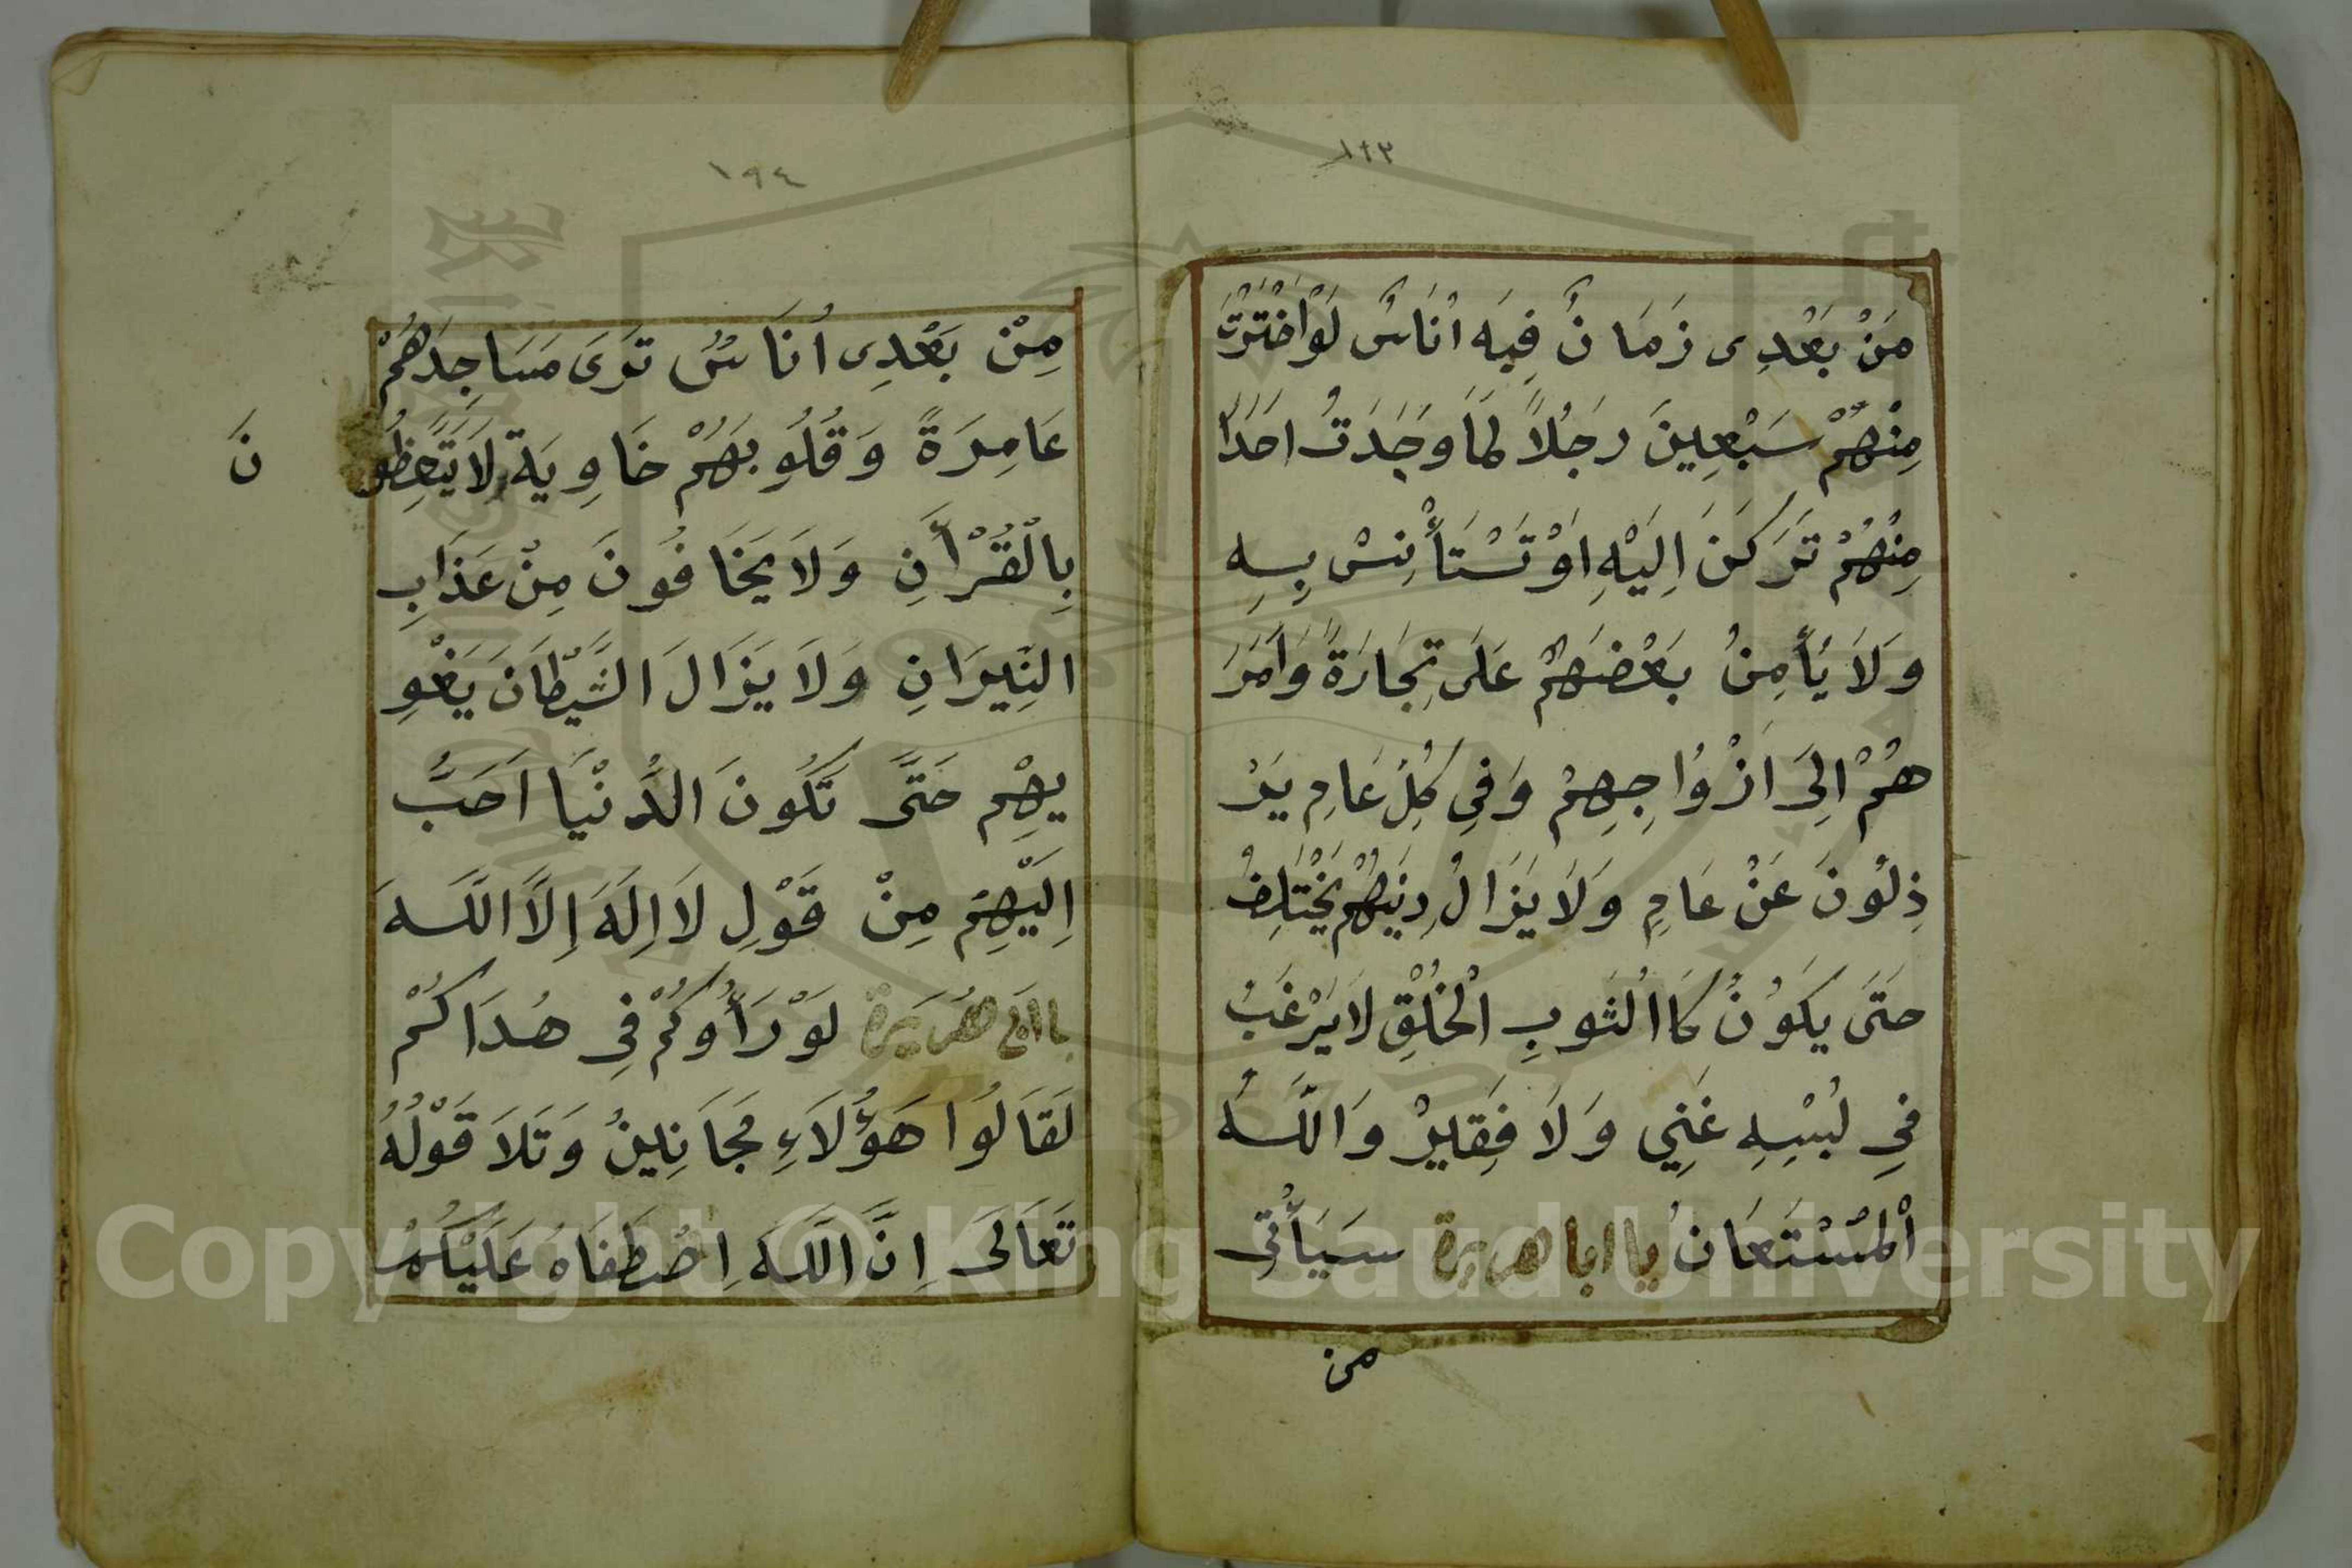 ١٩٣
مَنْ بَعْدِى زَمَانٌ فِيَه اُنَاسٌ لَوْاخْتَرْتَ
مِنْهُمْ سَبْعِينَ رَجُلاً لَمَا وَجَدَتْ احَدًا
مِنْهُمْ تَرَكَنَ اِلَيْهِ اَوْ تَسْتَأْنِسْ بِهِ
وَلَا يَأْمِنُ بَعْضَهُمْ عَلَى تِجَارَةً وَاَمَرَ
هُمْ اِلَى اَزْوَاجِهِمْ وَفِى كُلِّ عَامٍ يَرْ
ذِلُونَ عَنْ عَامٍ وَلَا يَزَالُ دِيَنِهُمْ يَخْتَلِفُ
حَتَى يَكَوُنُ كَاالْثَوبِ الْخَلْقِ لَا يَرْغَبُ
فِي لُبْسِهِ غَنِي وَلَا فَقِيرْ وَاللَّهُ
اْلمُسْتَعَانُ يا ابا هريرة سَيَأْتِى
من
١٩٤
مِنْ بَعْدِى اُنَاسٌ تَرَى مَسَاجِدَهُمْ
عَامِرَةً وَقُلُوبَهُمْ خَاوِيَة لَا يَتَّعِظُو
نَ
بِالْقُرْأَنِ وَلَا يَخَافُونَ مِنْ عَذَابِ
النِّيرَانِ وَلَا يَزَالَ الشَّيْطَانَ يَغْوِ
يهِمْ حَتَّى تَكُونَ الدُّنْيَا اَحَبَّ
اِلَيْهِمْ مِنْ قَوْلِ لَا اِلَهَ اِلَّا اللَّهَ
ياابى هُرَيرة لَوْ رَأَوْكُمْ فِى هُدَاكُمْ
لَقَالُوا هَؤُلَاءِ مَجَانِينُ وَتَلَا قَوْلُهُ
تَعَالَى اِنَّ اللَّهَ اِصْطَفَاهُ عَلَيْكُمْ
Copyright © King Saud University